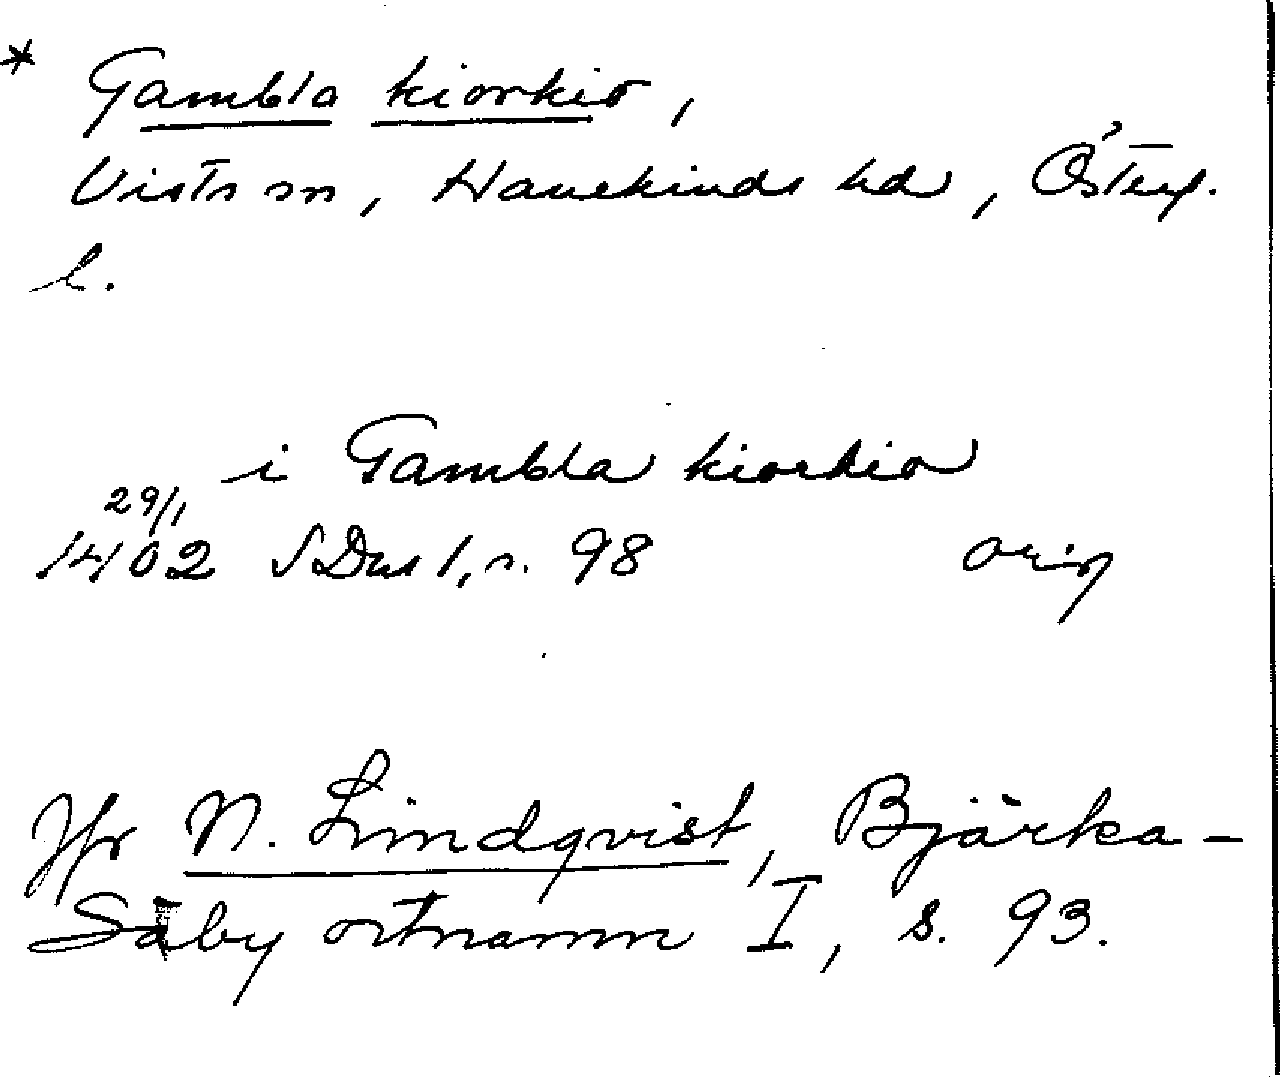 * Gambla kiorkio,
Vists sn, Hanekinds hd, Österg.
l.
i Gambla kiorkio
29/1
1402 SDns 1, s. 98 orig
Jfr N. Lindqvist, Bjärka-
Säby ortnamn I, s. 93.